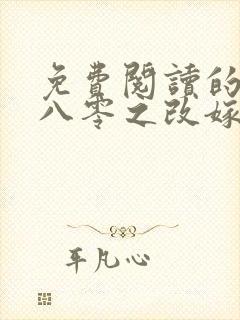 免費閱讀的
八零之改嫁
平凡心